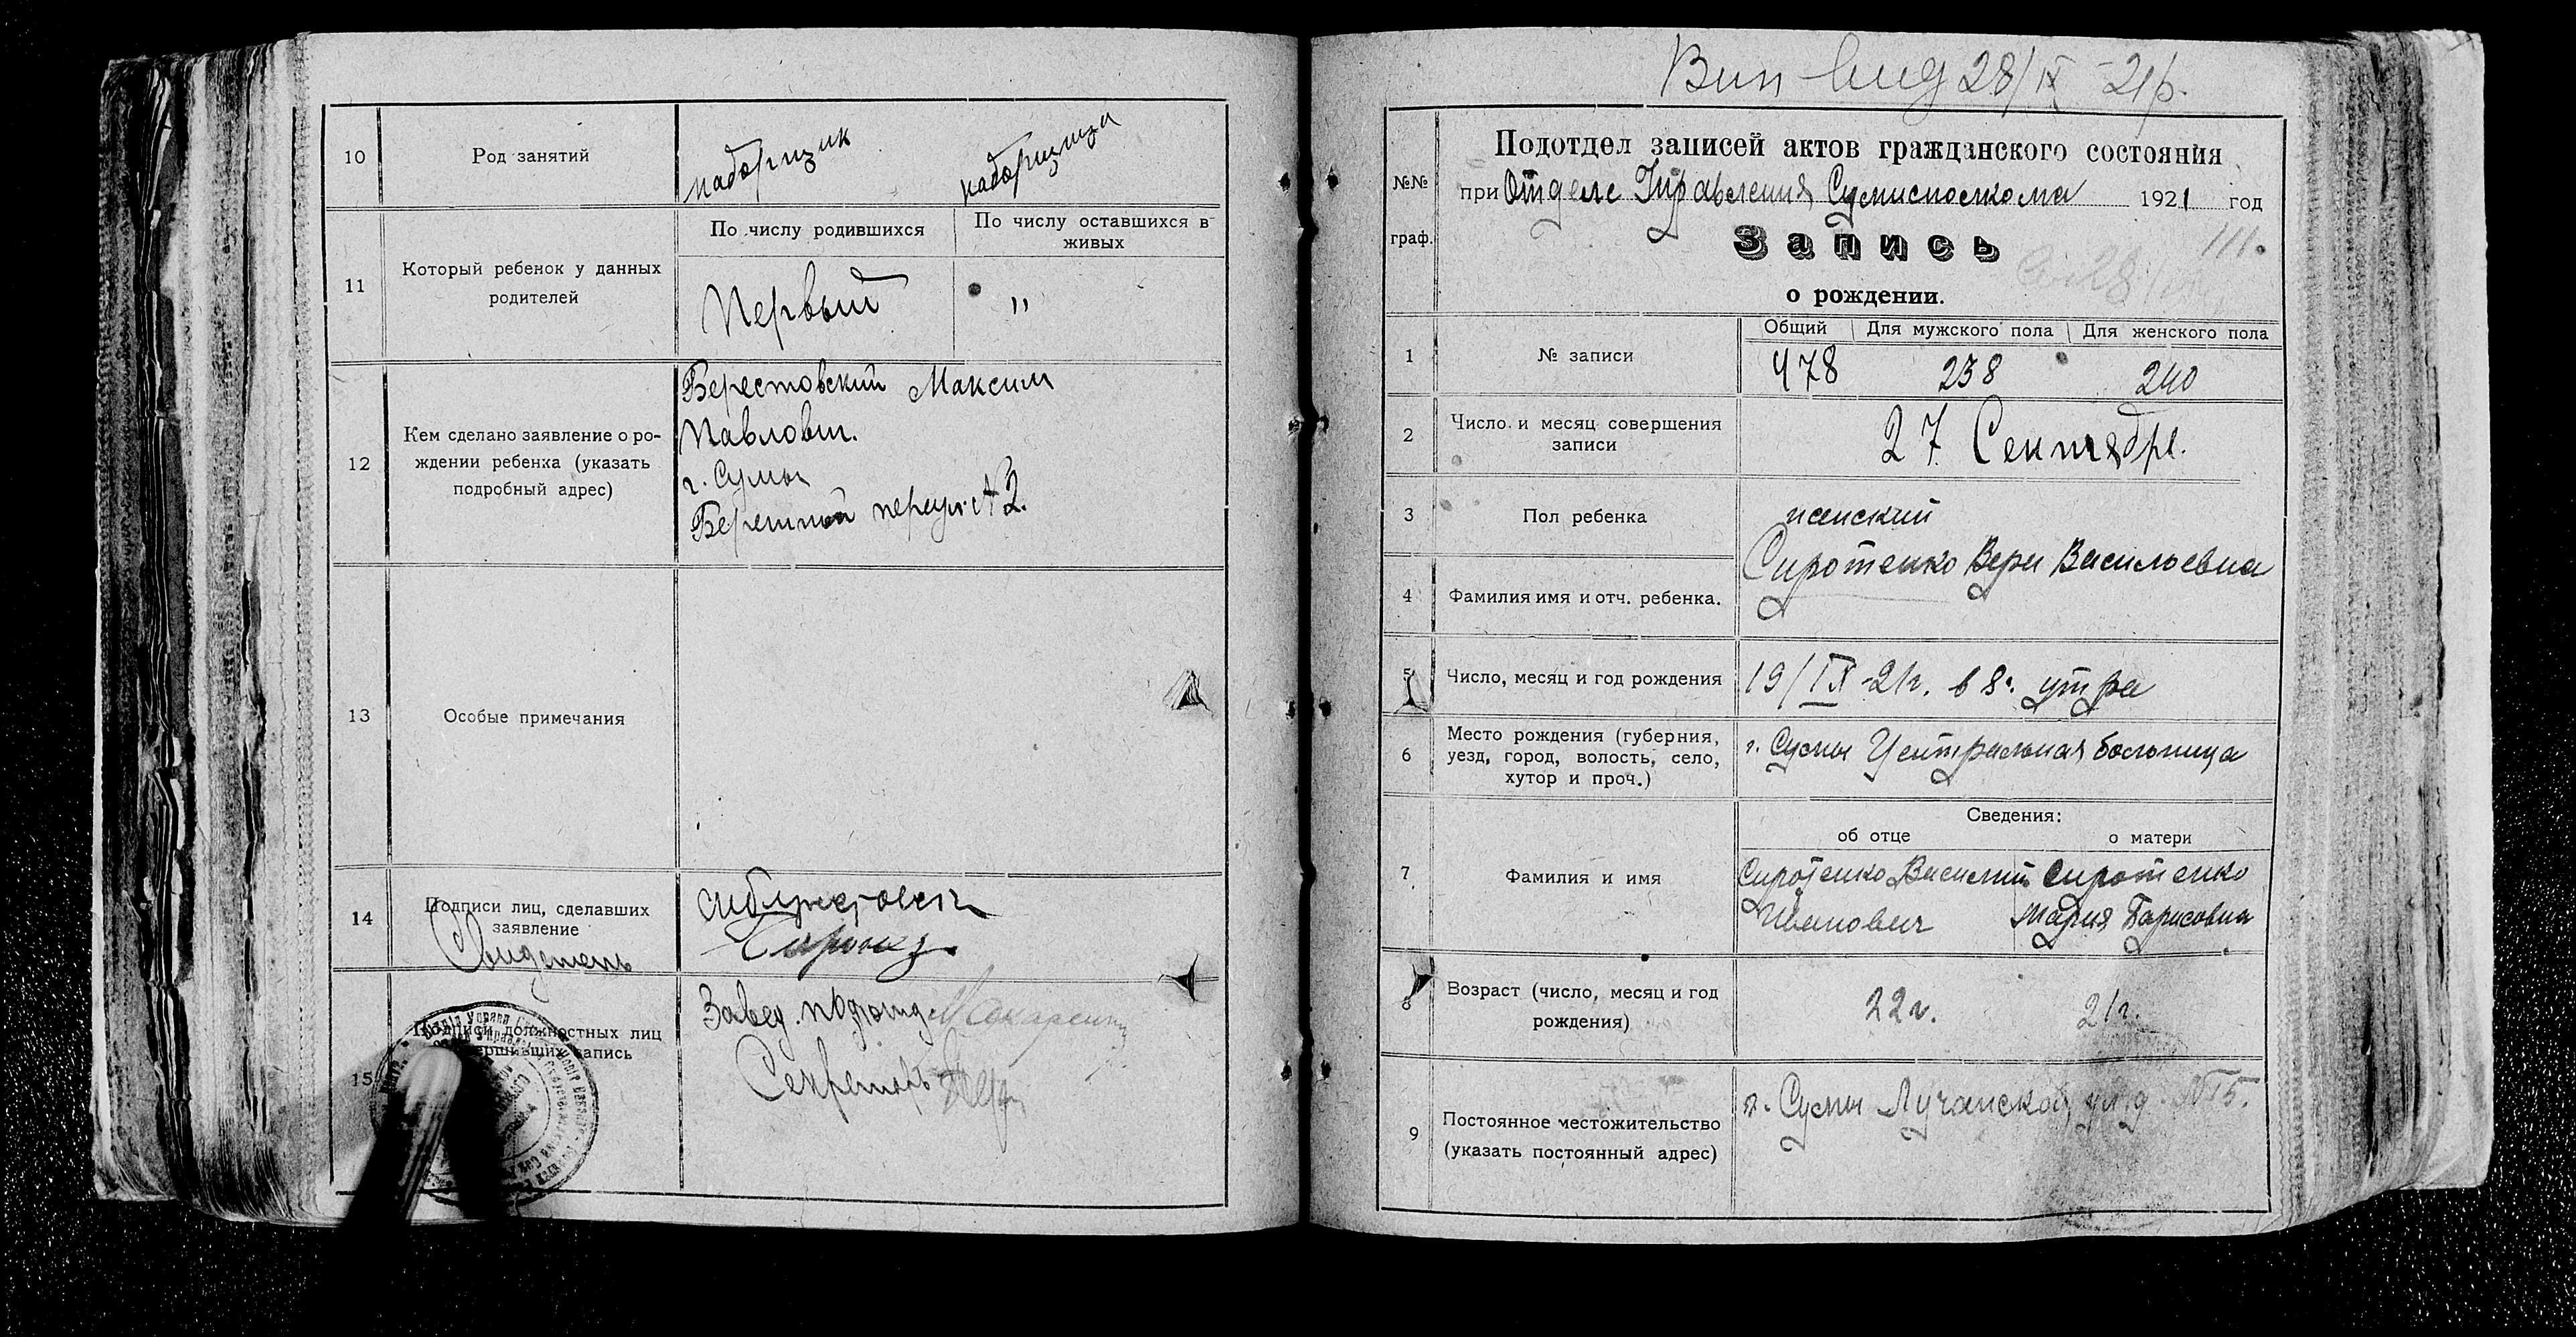 10
Род занятий
наборщик
наборщица
11
Который ребенок у данных
родителей
По числу родившихся
По числу оставшихся в
живых
Первый
"
12
Кем сделано заявление о ро-
ждении ребенка (указать
подробный адрес)
Берестовский Максим
Павлович.
г. Сумы
переул. № 2.
13
Особые примечания
14
Подписи лиц, сделавших
заявление
Свидетель
15
Подписи должностных лиц
совершивших запись
Завед. подотд
Секретарь
28/IX-21р.
№№
граф.
Подотдел записей актов гражданского состояния
при Отделе Управления Сумисполкома 1921 год
Запись
111.
о рождении.
1
№ записи
Общий
Для мужского пола
Для женского пола
478
238
240
2
Число и месяц совершения
записи
27 Сентября.
3
Пол ребенка
женский
4
Фамилия имя и отч. ребенка.
Сиротенко Вера Васильевна
5
Число, месяц и год рождения
19/IX-21г. в 8ч. утра
6
Место рождения (губерния,
уезд, город, волость, село,
хутор и проч.)
г. Сумы Центральная больница
7
Фамилия и имя
Сведения:
об отце
о матери
Сиротенко Василий
Иванович
Сиротенко
Мария Борисовна
8
Возраст (число, месяц и год
рождения)
22г.
21г.
9
Постоянное местожительство
(указать постоянный адрес)
г. Сумы Лучанская ул. д. №15.